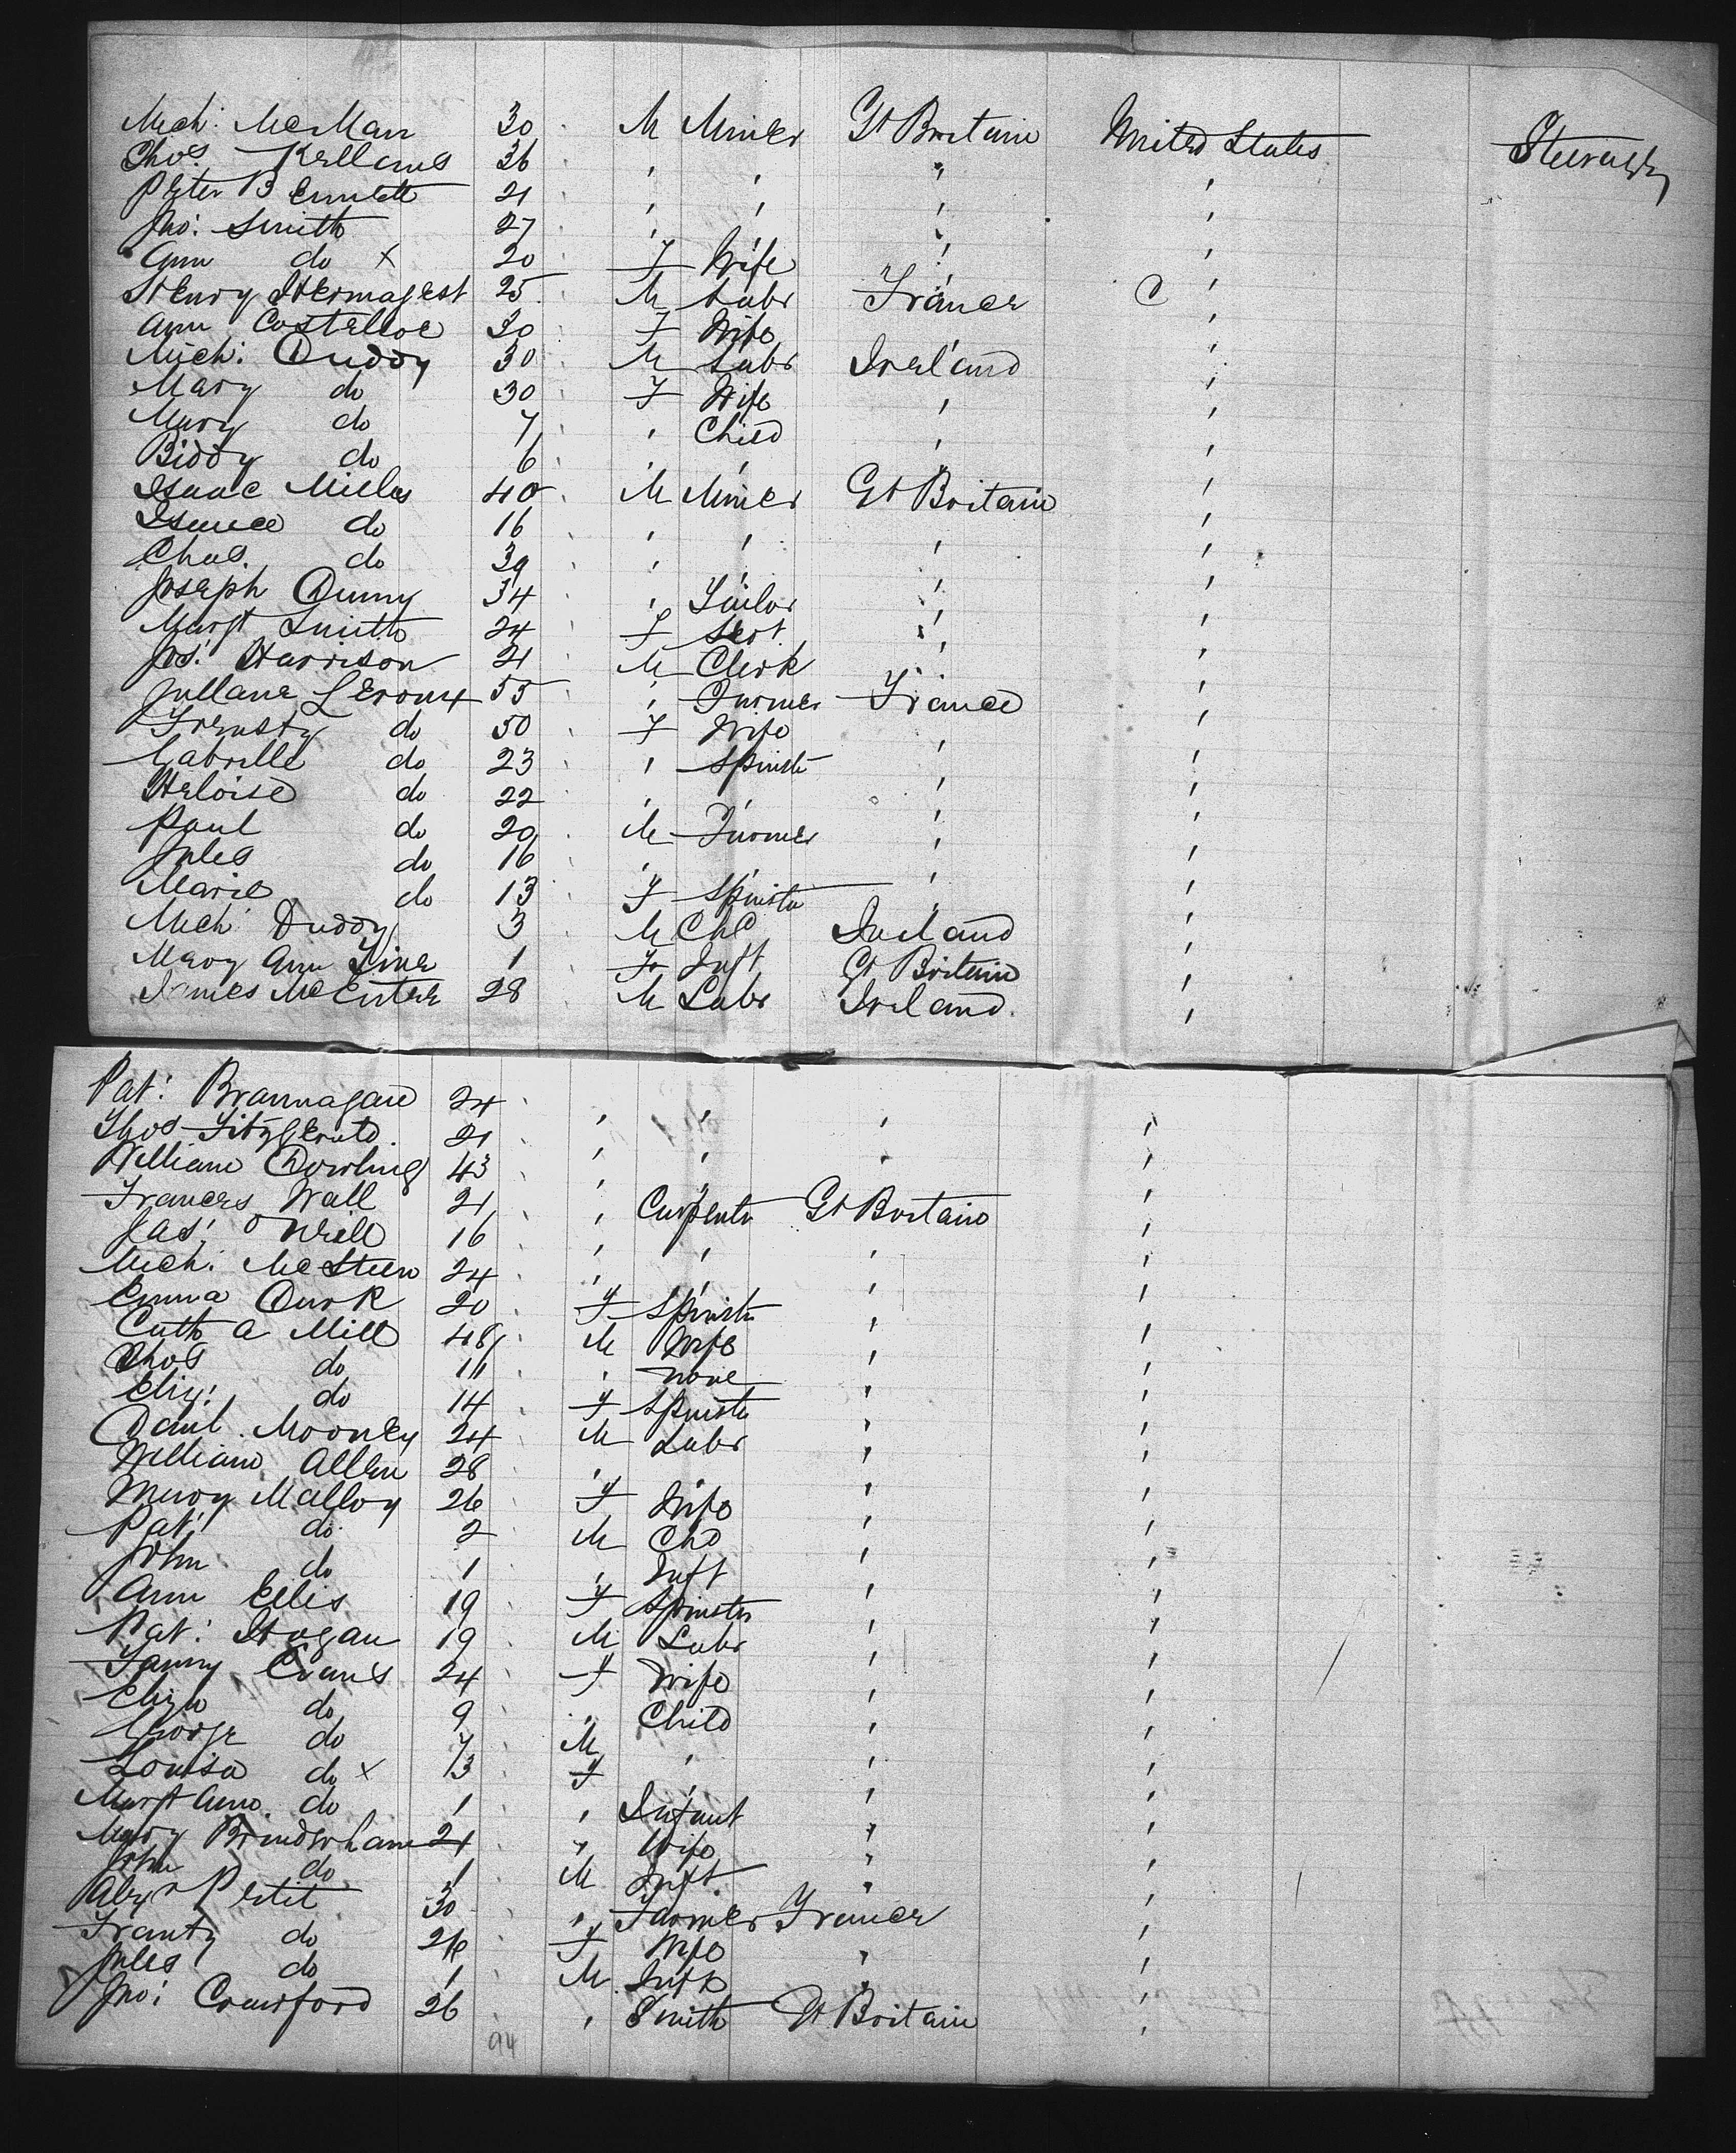 Mich: McMan 30 M Miner Gt Britain United States Steerage
Thos. Kellams 36 " " " "
Peter Bennett 21 " " " "
Jno: Smith 27 " " " "
Ann do x 20 F Wife " "
Henry Hermagest 25 M Labr France C "
Ann Costelloe 30 F Wife " "
Mich: Duddy 30 M Labr Ireland "
Mary do 30 F Wife " "
Mary do 7 " Child " "
Biddy do 6 " " " "
Isaac Miles 40 M Miner Gt Britain "
Isaac do 16 " " " "
Chas. do 39 " " " "
Joseph Dunny 34 " Tailor " "
Margt Smith 24 F Sert " "
Jos: Harrison 21 M Clerk " "
Jullane Leroux 55 " Farmer France "
Frensty do 50 F Wife " "
Gabrille do 23 " Spinstr " "
Heloise do 22 " " " "
Paul do 20 M Farmer " "
Jules do 16 " " " "
Marie do 13 F Spinstr " "
Mich: Duddy 3 M Chd Ireland "
Mary Ann King 1 F Inft Gt Britain "
James McEntee 28 M Labr Ireland. "
Pat: Brannagan 24 " " " "
Thos Fitzgerald. 21 " " " "
William Dowling 43 " " "
Frances Wall 21 " Carpentr Gt Britain "
Jas: O'Neill 16 " " " "
Mich: McSteen 24 " " " "
Emma Durk 20 F Spinstr " "
Cath a Mill 48 M Wife " "
Thos do 11 " None " "
Eliz: do 14 F Spinstr " "
Danl. Mooney 24 M Labr " "
William Allen 28 " " "
Mary Malloy 26 F Wife " "
Pat: do 2 M Chd " "
John do 1 " Inft " "
Ann Ellis 19 F Spinstr " "
Pat: Hogan 19 M Labr " "
Fanny Evans 24 F Wife " "
Eliza do 9 " Child " "
George do 7 M " " "
Louisa do x 13 F " " "
Margt Ann. do 1 " Infant " "
Mary 21 " Wife " "
John do 1 M Inft " "
Alexr Petit 30 " Farmer France "
Franty do 26 F Wife " "
Jules do 1 M Inft " "
Jno: Crawford 26 " Smith Gt Britain "
94